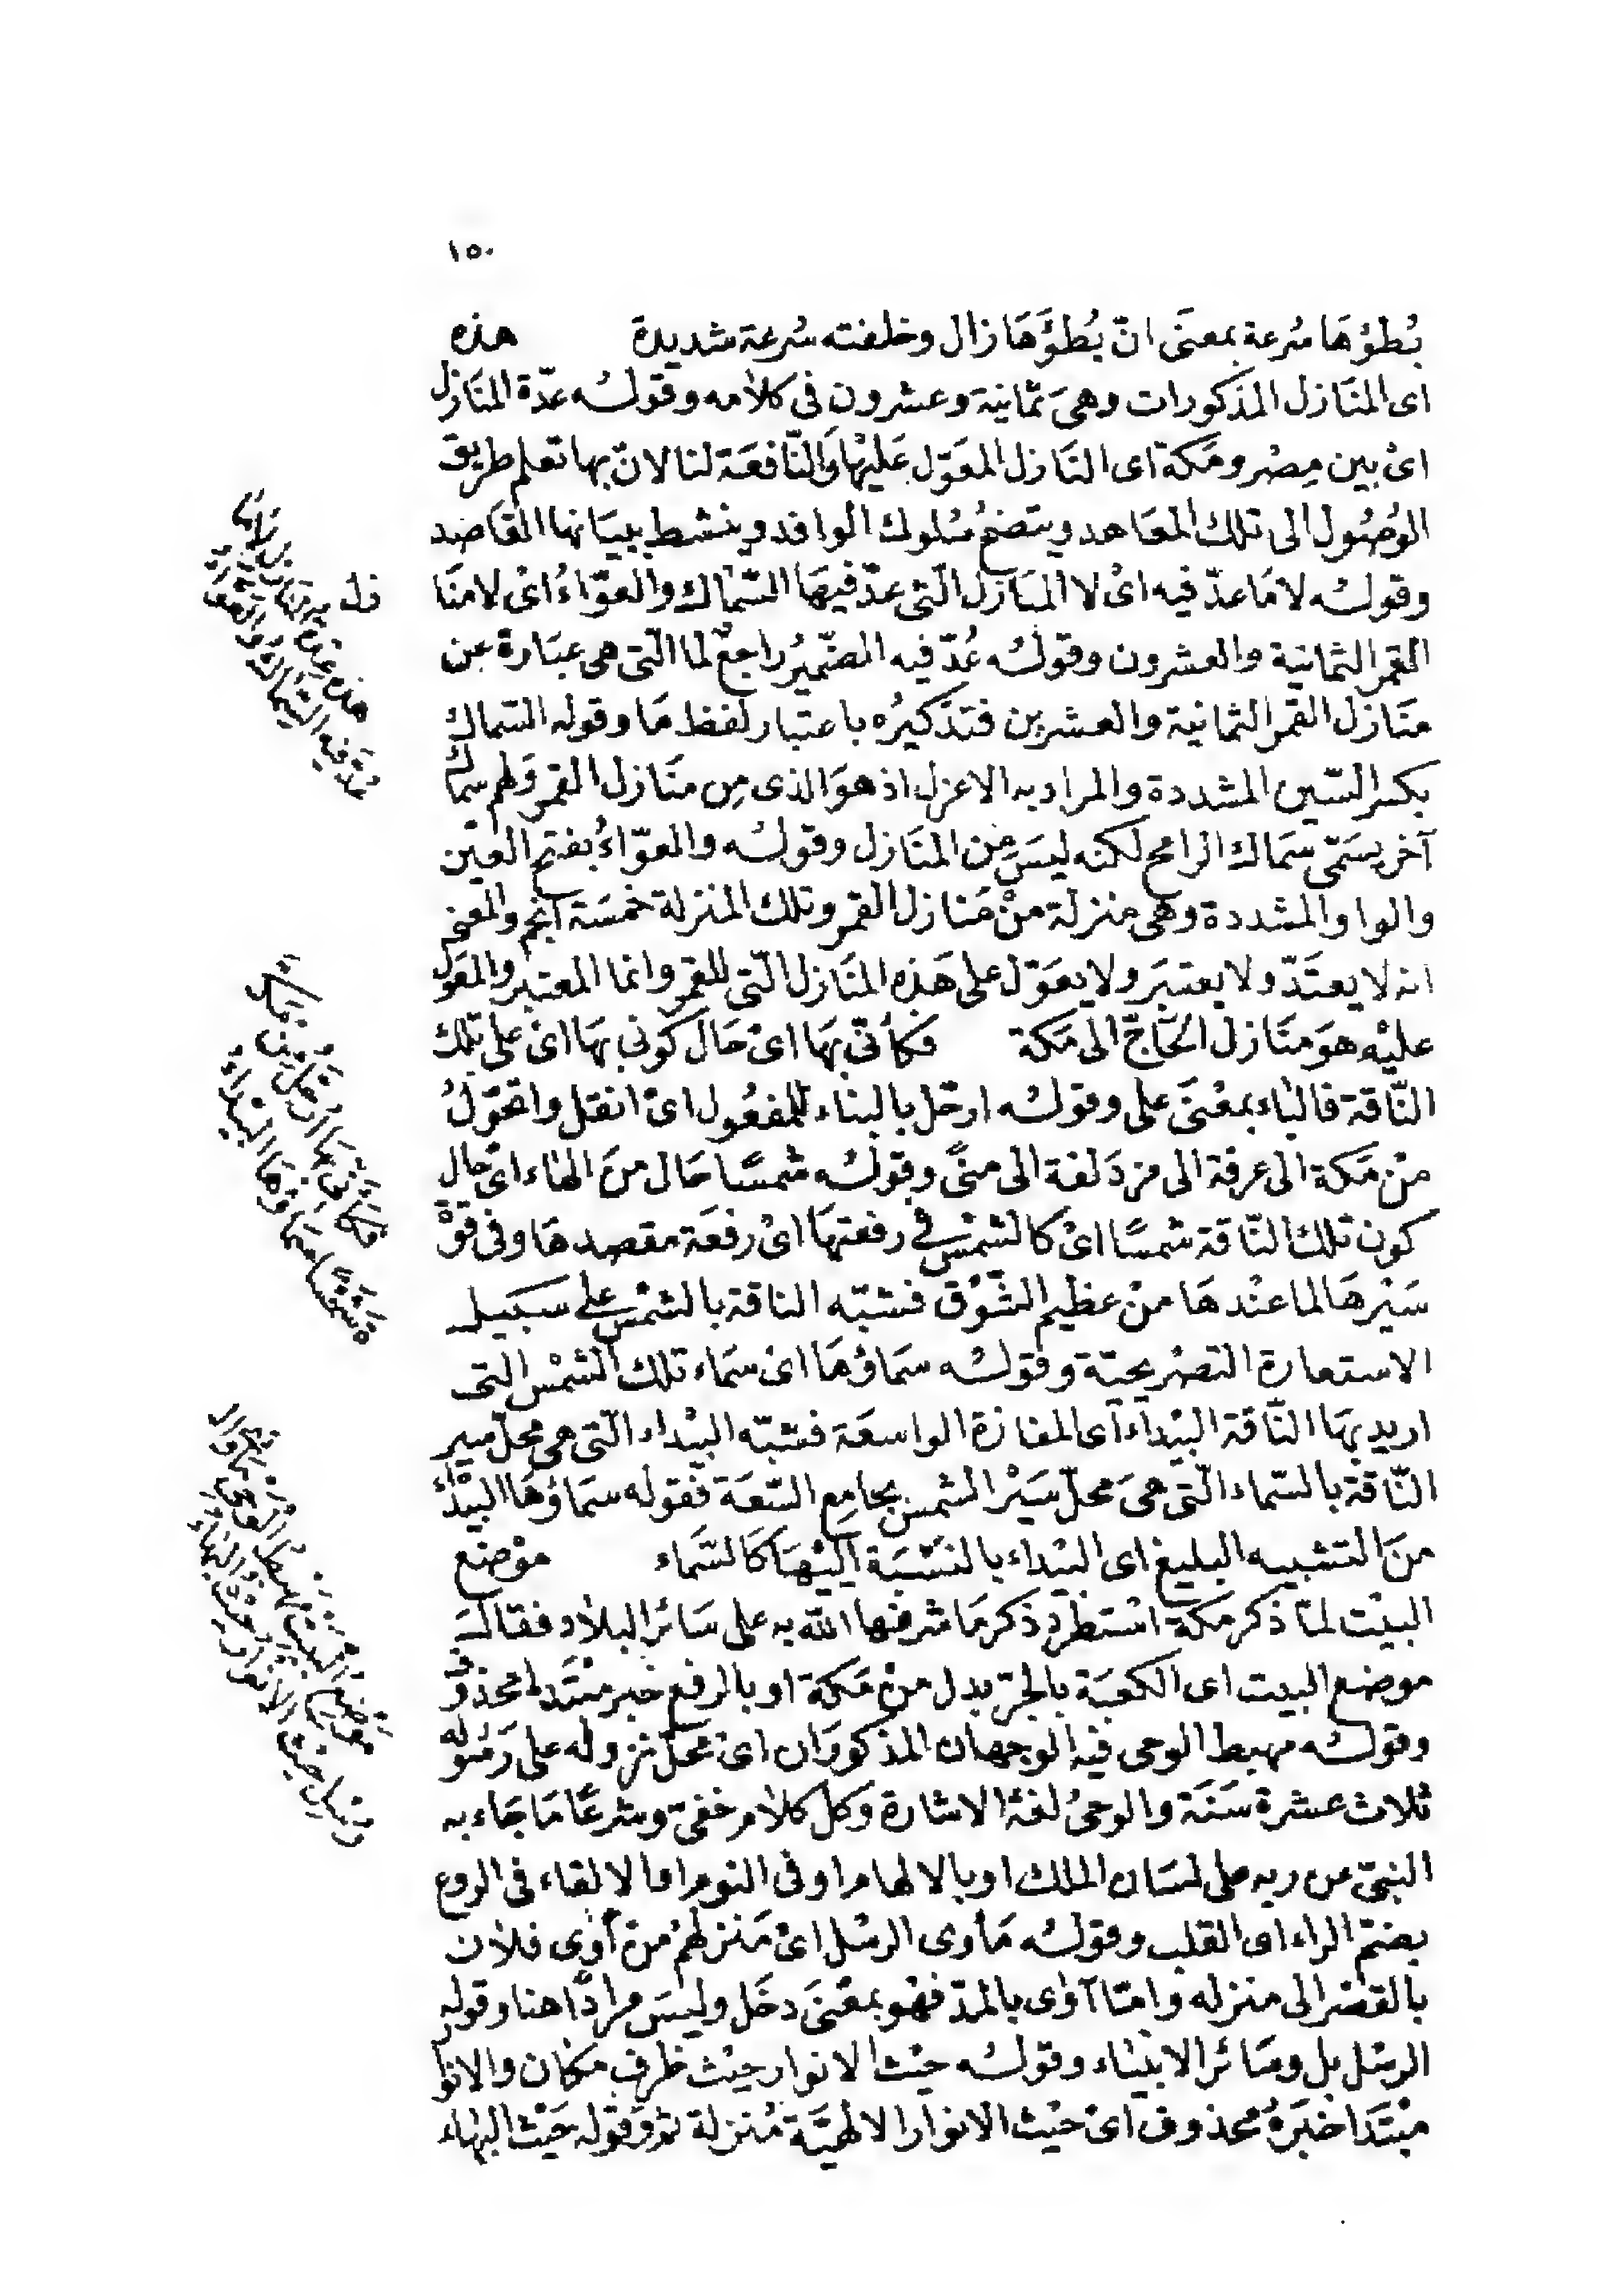 ١٥٠
بُطؤهَا سُرعة بمعنَى انّ بُطؤَهَا زال وخلفته سُرعة شديدة هذه
اى المنَازل المذكورات وهىَ ثمانيَة وعشرون فى كلامه وقولـُه عدّة المنَازل
اىْ بين مِصْر ومَكة اى المنَازل المعَوّل عَليْهَا وَالنّافعَة لنا لانّ بها تعلم طريق
الوُصُول الى تلك المعَاهد ويتضحُ سُلوك الوافد وينشط ببيَانها المقاصد
وقولـُه لا مَا عدّ فيه اىْ لا المنَازل الّتى عدّ فيهَا السّماك والعوّاءُ اىْ لا منَا
القمر الثمانية والعشرون وقولـُه عُدّ فيه الضّميرُ راجعٌ لما الّتى هى عبَارة عن
منَازل القمر الثمانية والعشرين فتذكيرُه باعتبار لفظ مَا وقوله السّماك
بكسر السّين المشددة والمراد به الاعزل اذ هوَ الذى مِن منَازل القمر ولهم سماكٌ
آخر يسَمّى سمَاك الرامح لكنه ليسَ مِن المنَازل وقولـُه والعوّاءُ بفتح العيْن
والواو المشددة وهى منزلة منْ مَنازل القمر وتلك المنزلة خمسَة انجم والمعنى
انه لا يعتَدّ ولا يعتبَر ولا يعَوّل على هَذه المنَازل الّتى للقمر وانما المعتبر والمعَول
عليْه هوَ منَازل الحَاجّ الى مَكة فكأنّى بهَا اىْ حَال كونى بهَا اىْ على تلك
النّاقة فالبَاء بمعْنَى على وقولـُه ارحّل بالبناء للمفعُول اىْ انقل واتحوّلُ
منْ مَكة الى عرفة الى مزدَلفة الى منىً وقولـُه شمسًا حَال منَ الهاء اىْ حال
كون تلك النّاقة شمسًا اىْ كالشمْس فى رفعتهَا اىْ رفعَة مقصدهَا وفى قوّة
سَيْرهَا لما عنْدهَا منْ عظيم الشّوْق فشبّه الناقة بالشمْس على سَبَيل
الاستعارة التصْريحيّة وقولـُه سمَاؤهَا اىْ سمَاء تلك الشمْس التى
اريد بهَا النّاقة البيْداء اى المفازة الواسعَة فشبّه البيْداء الّتى هى محلّ سير
النّاقة بالسّماء الّتى هىَ محلّ سَيْر الشمس بجامع السّعَة فقوله سمَاؤهَا البيْدَاءُ
منَ التشبيه البليغ اى البيْداء بالنسْبَة اليْهَا كالسّماء موْضع
البيْت لمّا ذكر مكة اسْتطرد ذكر مَا شرفها الله به على سَائر البلاد فقالـَ
موضع البيت اى الكعبَة بالجرّ بدل منْ مَكة او بالرفع خبر مبْتَدا محذوف
وقولـُه مهبط الوحى فيْه الوجهان المذكورَان اىْ محَلّ نزوله على رَسُوله
ثلاث عشرة سَنَة والوحىُ لغة الاشارة وَكل كلام خفىّ وشرعًا مَا جَاء به
النبىّ عن ربه على لسَان الملك او بالالهام او فى النوم او الالقاء فى الروع
بضمّ الراء اى القلب وقولـُه مَأوى الرسُل اىْ مَنزلهُمْ منْ أوى فلان
بالقصْر الى منزله وامّا آوى بالمدّ فهْو بمعْنَى دخَل وليسَ مرادًا هنا وقوله
الرسْل بل وسَائر الانبيَاء وقولـُه حيْث الانوار حيْث ظرف مكان والانوا
مبْتَدَا خبَرهُ محْذوف اىْ حيْث الانوار الالٰهيَّة مُنزلة ثم وقوله حَيْث البهاء
هذه عِدّة المنَازِل لا مَا
عُدّ فيه السّماكُ والعَوّاءُ
فكَأنّى بِهَا أُرَحّلُ مِن مَكّـ
ـةَ شمْسًا سمَاؤهَا البَيْداءُ
مَوْضِعُ البَيْت مَهْبِط الوَحْىِ مأوَى الـ
ـرّسْلِ حَيْث الأنوار حَيْث البَهَاءُ